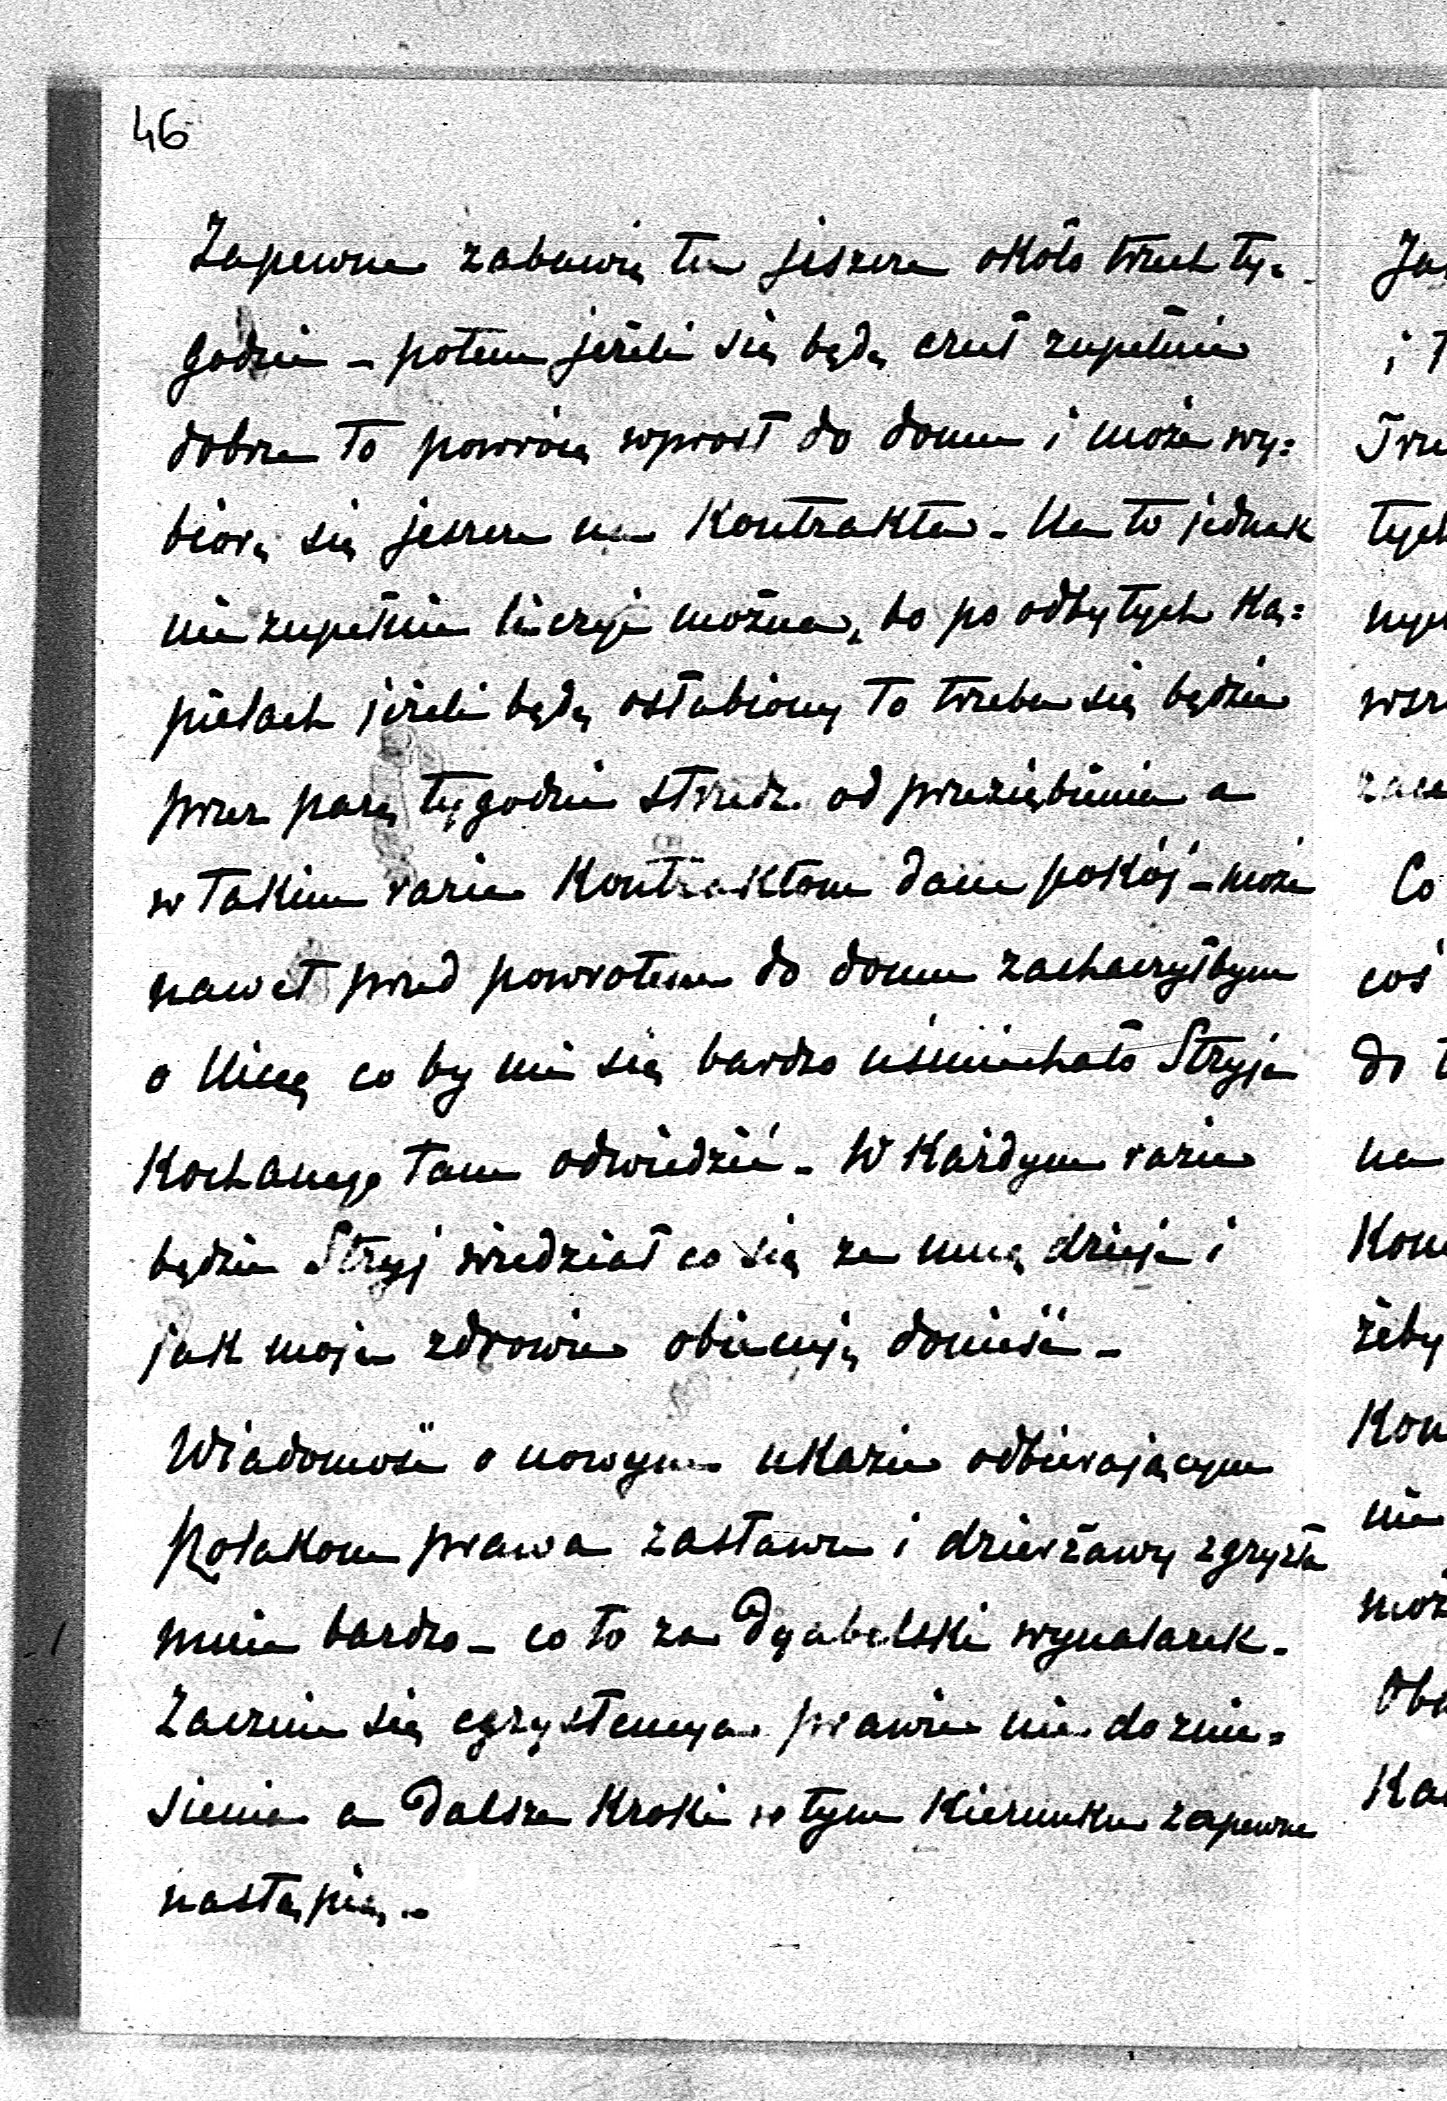 46
Zapewne zabawię tu jeszcze około trzech ty=
godni – potem jeżeli się będę czuł zupełnie
dobrze to powrócę wprost do domu i może wy=
biorę się jeszcze na Kontrakta – Na to jednak
nie zupełnie liczyć można, bo po odbytych Ką=
pielach jeżeli będę osłabiony to trzeba się będzie
przez parę tygodni strzedz od przeziębienia a
w takim razie Kontraktom dam pokój – może
nawet przed powrotem do domu zachaczyłbym
o Niceę co by mi się bardzo uśmiechało Stryja
Kochanego tam odwiedzić – W Każdym razie
będzie Stryj wiedział co się ze mną dzieje i
jak moje zdrowie obiecuję donieść –
Wiadomość o nowym ukazie odbierającym
Polakom prawa zastawu i dzierżawy zgryzła
mnie bardzo – co to za dyabelski wynalazek –
Zacznie się egzystencya prawie nie do znie=
sienia a dalsze Kroki w tym Kierunku zapewne
nastąpią –
Co
coś
do
na
żeby
nie